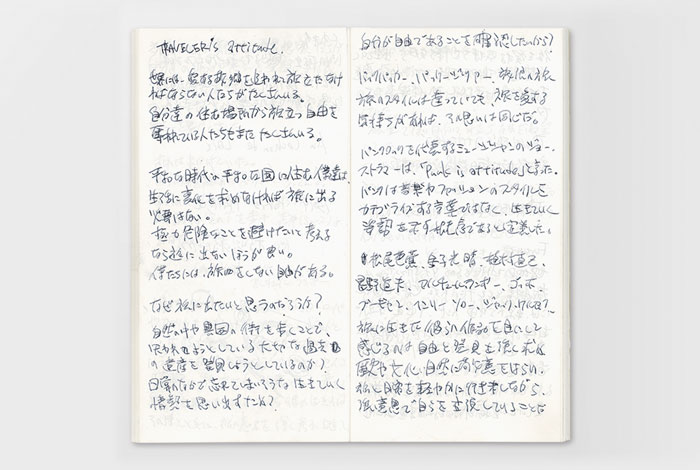 TRAVELER's attitude.
世界には、愛する故郷を追われて旅立たなけ
ればならない人たちがたくさんいる。
自分達の住む場所から旅立つ自由を
奪われている人たちもまた たくさんいる。
平和な時代の平和な国に住む僕達は、
生活に変化を求めなければ旅に出る
必要はない。
極力危険なことを避けたいと考える
なら旅に出ないほうが良い。
僕たちには、旅をしない自由がある。
なぜ旅に出たいと思うのだろうか？
自然の中や異国の街を歩くことで、
失われようとしている大切な過去
の遺産を発見しようとしているのか？
日常のなかで忘れてしまうような 生きていく
姿勢を思い出すため？
自分が自由であることを確認したいから？
バックパッカー、バッケージツアー、旅
旅のスタイルは違っていても、旅を愛する
気持ちがあれば、その思いは同じだ。
パンクロックを代表するミュージシャンのジョー・
ストラマーは、「Punk is attitude」と言った。
パンクは音楽やファッションのスタイルを
カテゴライズする言葉ではなく、生きていく
姿勢を示す概念であると定義した。
松尾芭蕉、金子光晴、植村直己、
星野道夫、ゴッホ、
ヘンリー・ソロー、ジャック・ケルアック。
旅に生きた彼らの作品を目にして
感じるのは自由と発見を強く求め
歴史や文化、自然に敬意をはらい、
旅と日常を軽やかに行き来しながら、